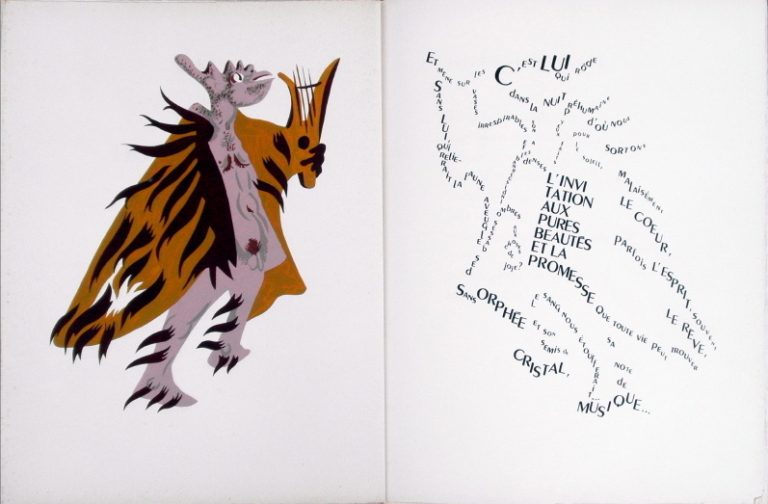 C'EST LUI
QUI RÔDE
dANS lA NUIT PRÉHUMAINE
d'OÙ NOUS
SORTONS
MALAISÉMENT
POUR
LE SOLEIL,
LE COEUR,
PARFOIS L'ESPRIT, SOUVENT
LE RÊVE,
ET MÈNE SUR LES
VASES
IRRESPIRABLES
denses
L'INVI
TATION
AUX
PURES
BEAUTÉS
ET LA
PROMESSE QUE TOUTE VIE PEUT TROUVER
SA
NOTE
DE
MUSIQUE...
SANS LUI
QUI RELIE-
RAIT LA FAUNE
AVEUGLE
dES
OMBRES
AUX
CHOSES
DE
JOIE?
SANS ORPHÉE
LE SANG NOUS ÉTOUFFERAIT...
ET SON
SEMIS de
CRISTAL,